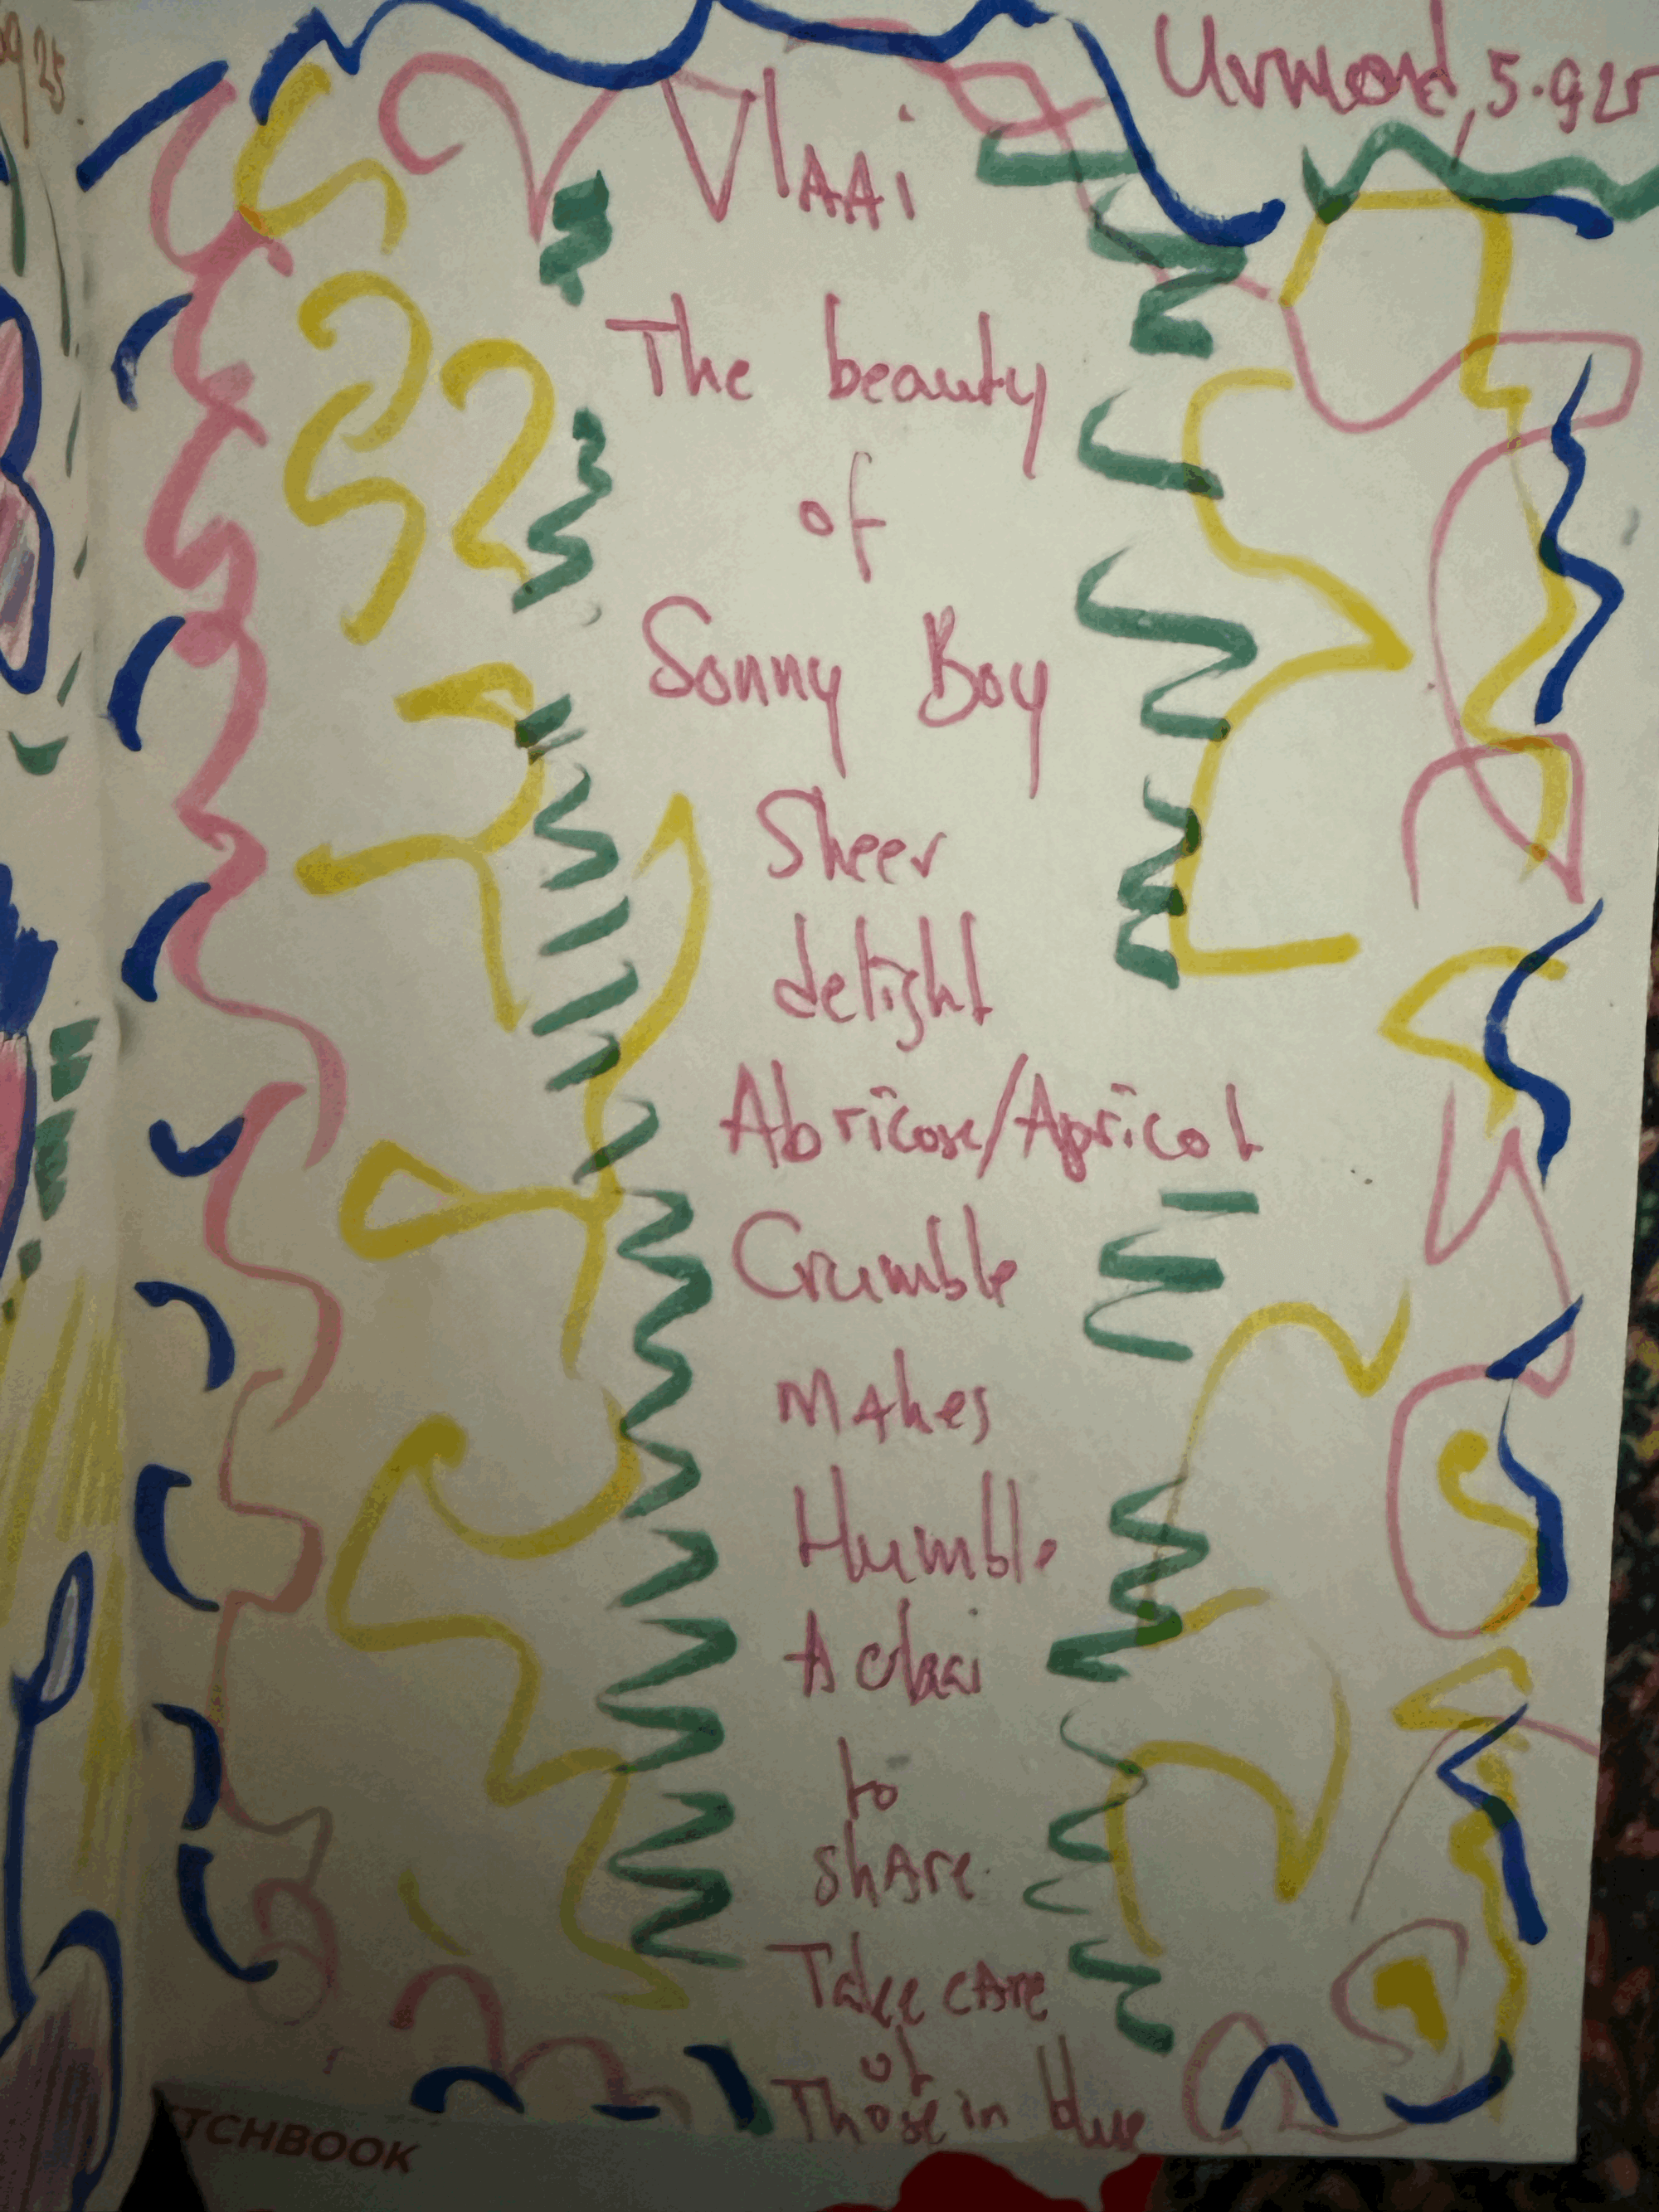 Urmond, 5.9 25
Vlaai
The beauty
of
Sonny Boy
Sheer
delight
Abricose/Apricot
Crumble
makes
Humble
A vlaai
to
share
Take care
of
Those in blue
TCHBOOK